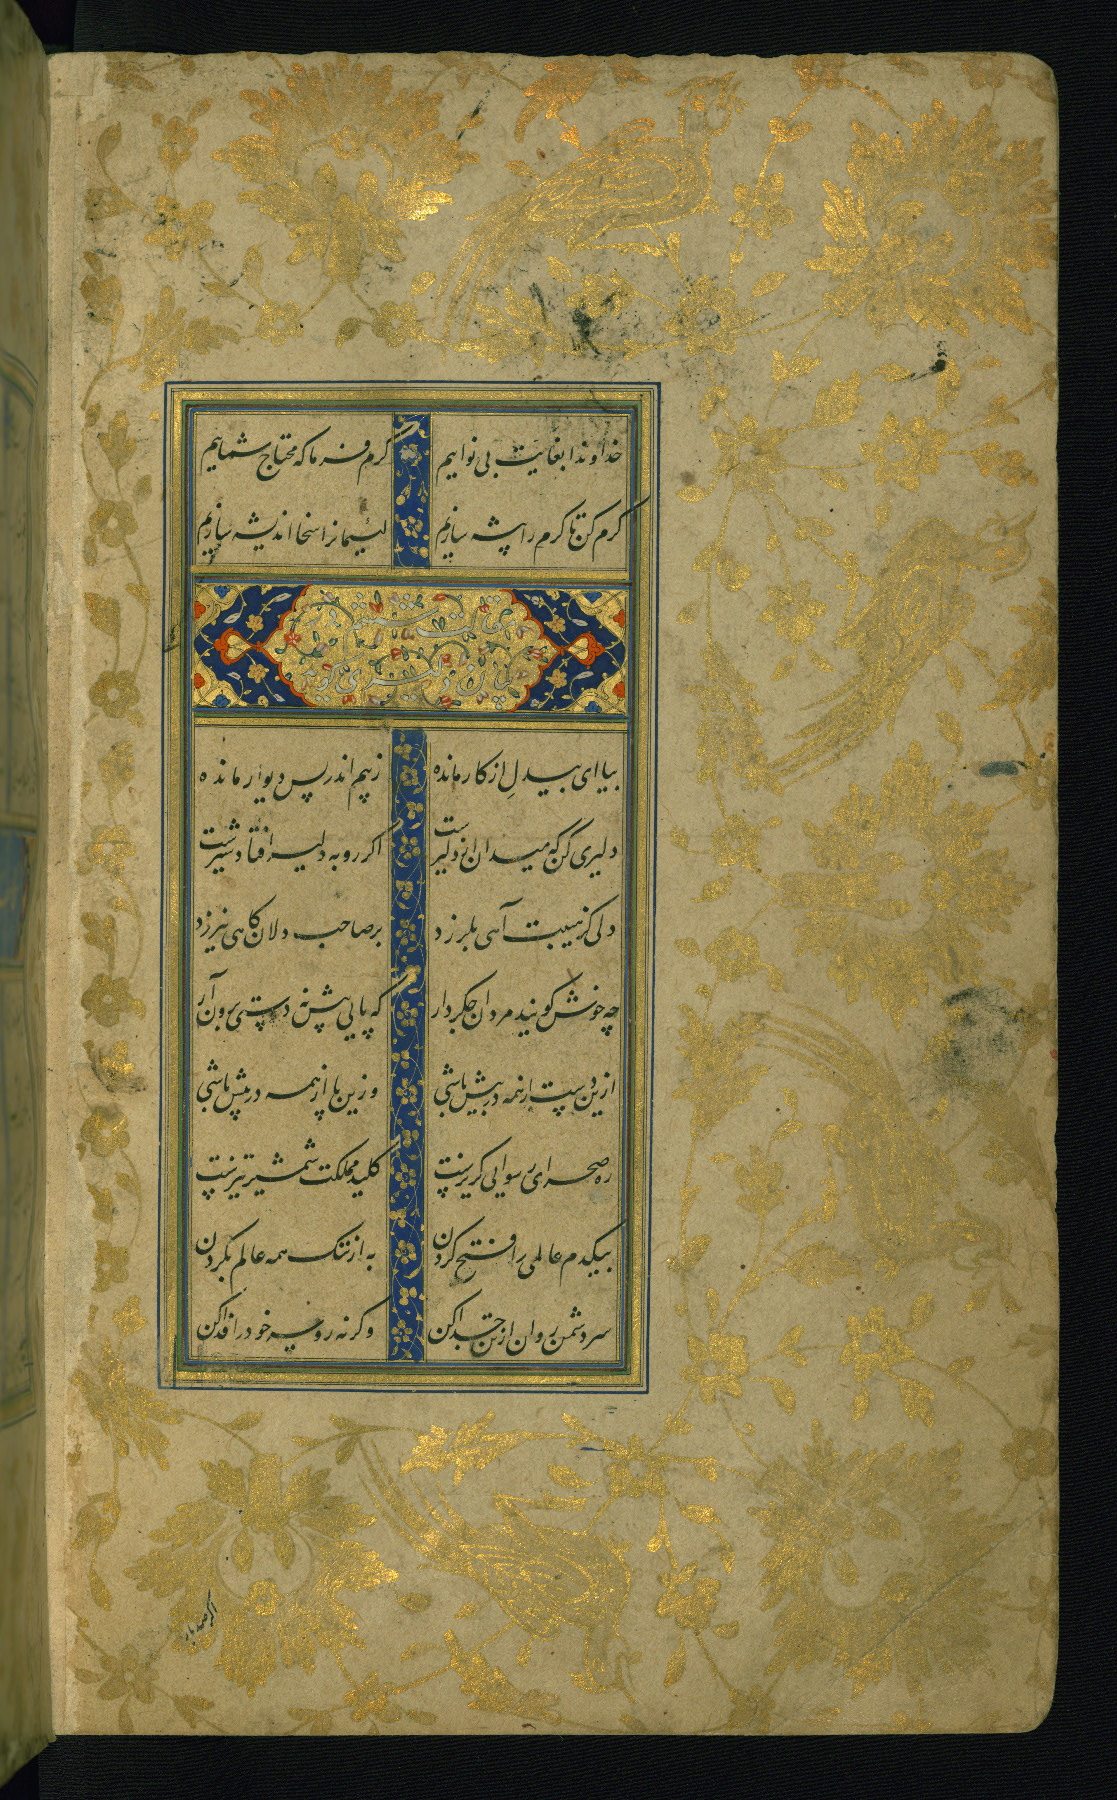 خداوندا بغایت بی نوایم کرم فرما که محتاج شماییم
کرم کن تا کرم را پیشه سازیم لئیمانرا سخا اندیشه سازیم
مقالت هشتم
بیان دلیری نمودن
بیا ای بیدل از کار مانده ز بیم اندر پس دیوار مانده
دلیری کن که میدان از دلیرست اگر روبه دلیر افتاد شیرست
دلی کز هیبت آهی بلرزد بر صاحب دلان کاهی نیرزد
چه خوش گویند مردان جگردار که پایی پیش نه دستی برون آر
ازین دست از همه در پیش باشی وزین پا از همه در پیش باشی
ره صحرای رسوایی گریزست کلید مملکت شمشیر تیزست
بیکدم عالمی را فتح کردن به از تنک همه عالم بگردن
سر دشمن روان از تن جدا کن وگرنه رو سر خود را فدا کن
اگر صد بار